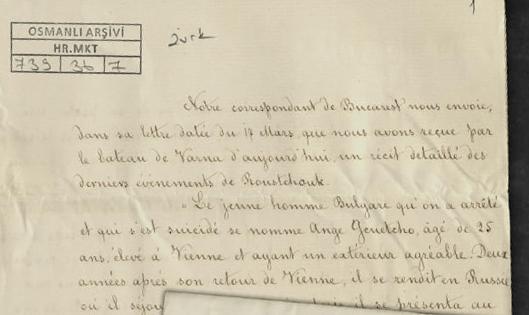 1
OSMANLI ARŞİVİ
HR.MKT
739 36 7
Notre correspondant de Bucarest nous envoie,
dans sa lettre datée du 17 Mars, que nous avons reçue par
le bateau de Varna d'aujourd'hui, un récit detaillé des
derniers événements de Roustchouk.
"Le jeune homme Bulgare qu'on a arrêté
et qui s'est suicidé se nomme Ange Geudcho, âgé de 25
ans, élevé à Vienne et ayant un extérieur agréable. Deux
années après son retour de Vienne, il se rendit en Russie
où il il se présenta au